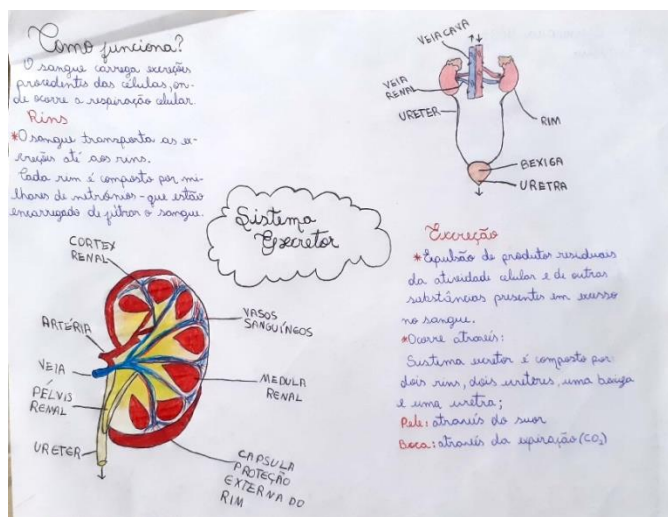 Como funciona?
O sangue carrega excreções
procedentes das células, on-
de ocorre a respiração celular.
Rins
*O sangue transporta as ex-
creções até aos rins.
Cada rim é composto por mi-
lhares de nefrónios - que estão
encarregado de filtrar o sangue.
VEIA CAVA
VEIA
RENAL
URETER
RIM
BEXIGA
URETRA
Sistema
Excretor
CORTEX
RENAL
ARTÉRIA
VEIA
PÉLVIS
RENAL
URETER
VASOS
SANGUÍNGOS
MEDULA
RENAL
CAPSULA
PROTEÇÃO
EXTERNA DO
RIM
Excreção
*Expulsão de produtos residuais
da atividade celular e de outras
substâncias presentes em excesso
no sangue.
*Ocorre através:
Sistema excretor é composto por
dois rins, dois ureteres, uma bexiga
e uma uretra;
Pele: através do suor
Boca: através da expiração (CO₂)